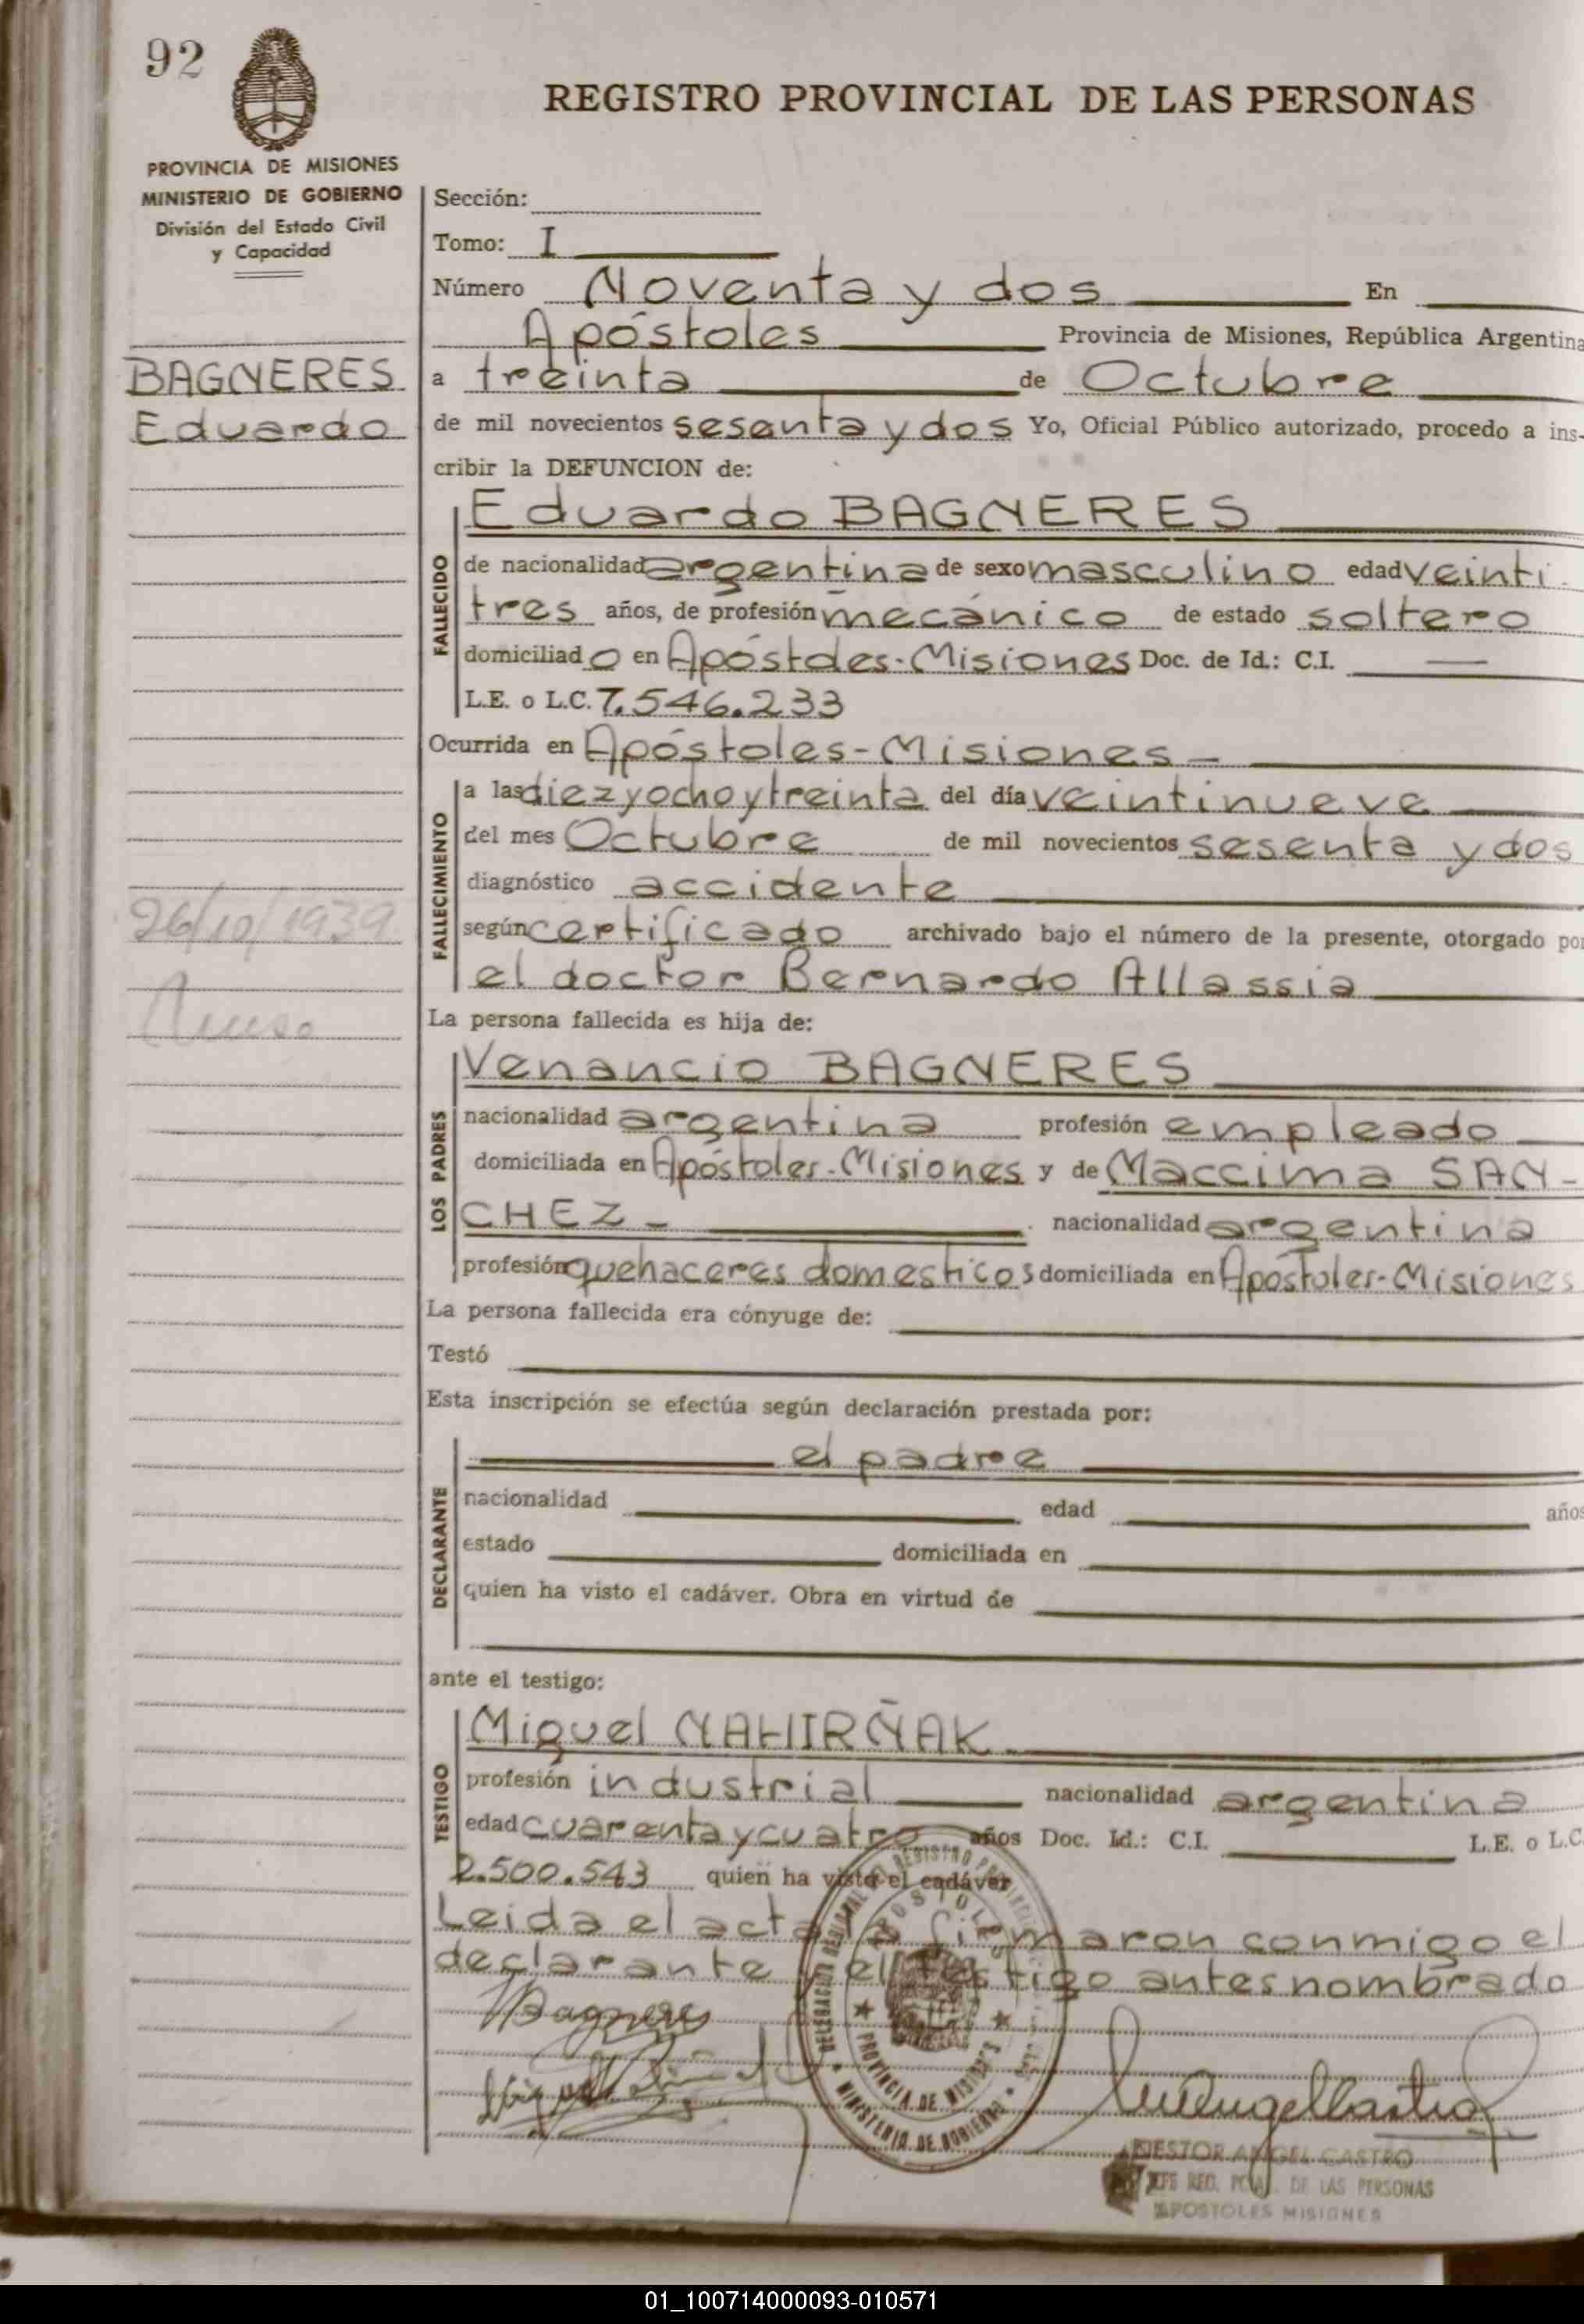 92
REGISTRO PROVINCIAL DE LAS PERSONAS
PROVINCIA DE MISIONES
MINISTERIO DE GOBIERNO
División del Estado Civil
y Capacidad
BAGNERES
Eduardo
26/10/1939
Sección:
Tomo: I
Número Noventa y dos En
Apóstoles Provincia de Misiones, República Argentina
a treinta de Octubre
de mil novecientos sesenta y dos Yo, Oficial Público autorizado, procedo a ins-
cribir la DEFUNCION de:
Eduardo BAGNERES
FALLECIDO
de nacionalidad argentina de sexo masculino edad veinti
tres años, de profesión mecánico de estado soltero
domiciliado en Apóstoles-Misiones Doc. de Id.: C.I. —
L.E. o L.C. 7.546.233
Ocurrida en Apóstoles-Misiones-
FALLECIMIENTO
a las diez y ocho y treinta del día veintinueve
del mes Octubre de mil novecientos sesenta y dos
diagnóstico accidente
según certificado archivado bajo el número de la presente, otorgado por
el doctor Bernardo Allassia
La persona fallecida es hija de:
LOS PADRES
Venancio BAGNERES
nacionalidad argentina profesión empleado
domiciliada en Apóstoles-Misiones y de Maccima SAN-
CHEZ- nacionalidad argentina
profesión quehaceres domesticos domiciliada en Apóstoles-Misiones
La persona fallecida era cónyuge de:
Testó
Esta inscripción se efectúa según declaración prestada por:
DECLARANTE
el padre
nacionalidad edad años
estado domiciliada en
quien ha visto el cadáver. Obra en virtud de
ante el testigo:
TESTIGO
Miguel NAHIRÑAK
profesión industrial nacionalidad argentina
edad cuarenta y cuatro años Doc. Id.: C.I. L.E. o L.C
2.500.543 quien ha visto el cadáver
Leida el acta la firmaron conmigo el
declarante y el testigo antes nombrado
Bagneres
PROVINCIA DE MISIONES
MINISTERIO DE GOBIERNO
NESTOR ANGEL CASTRO
JEFE REG. PCIAL. DE LAS PERSONAS
APOSTOLES MISIONES
01_100714000093-010571